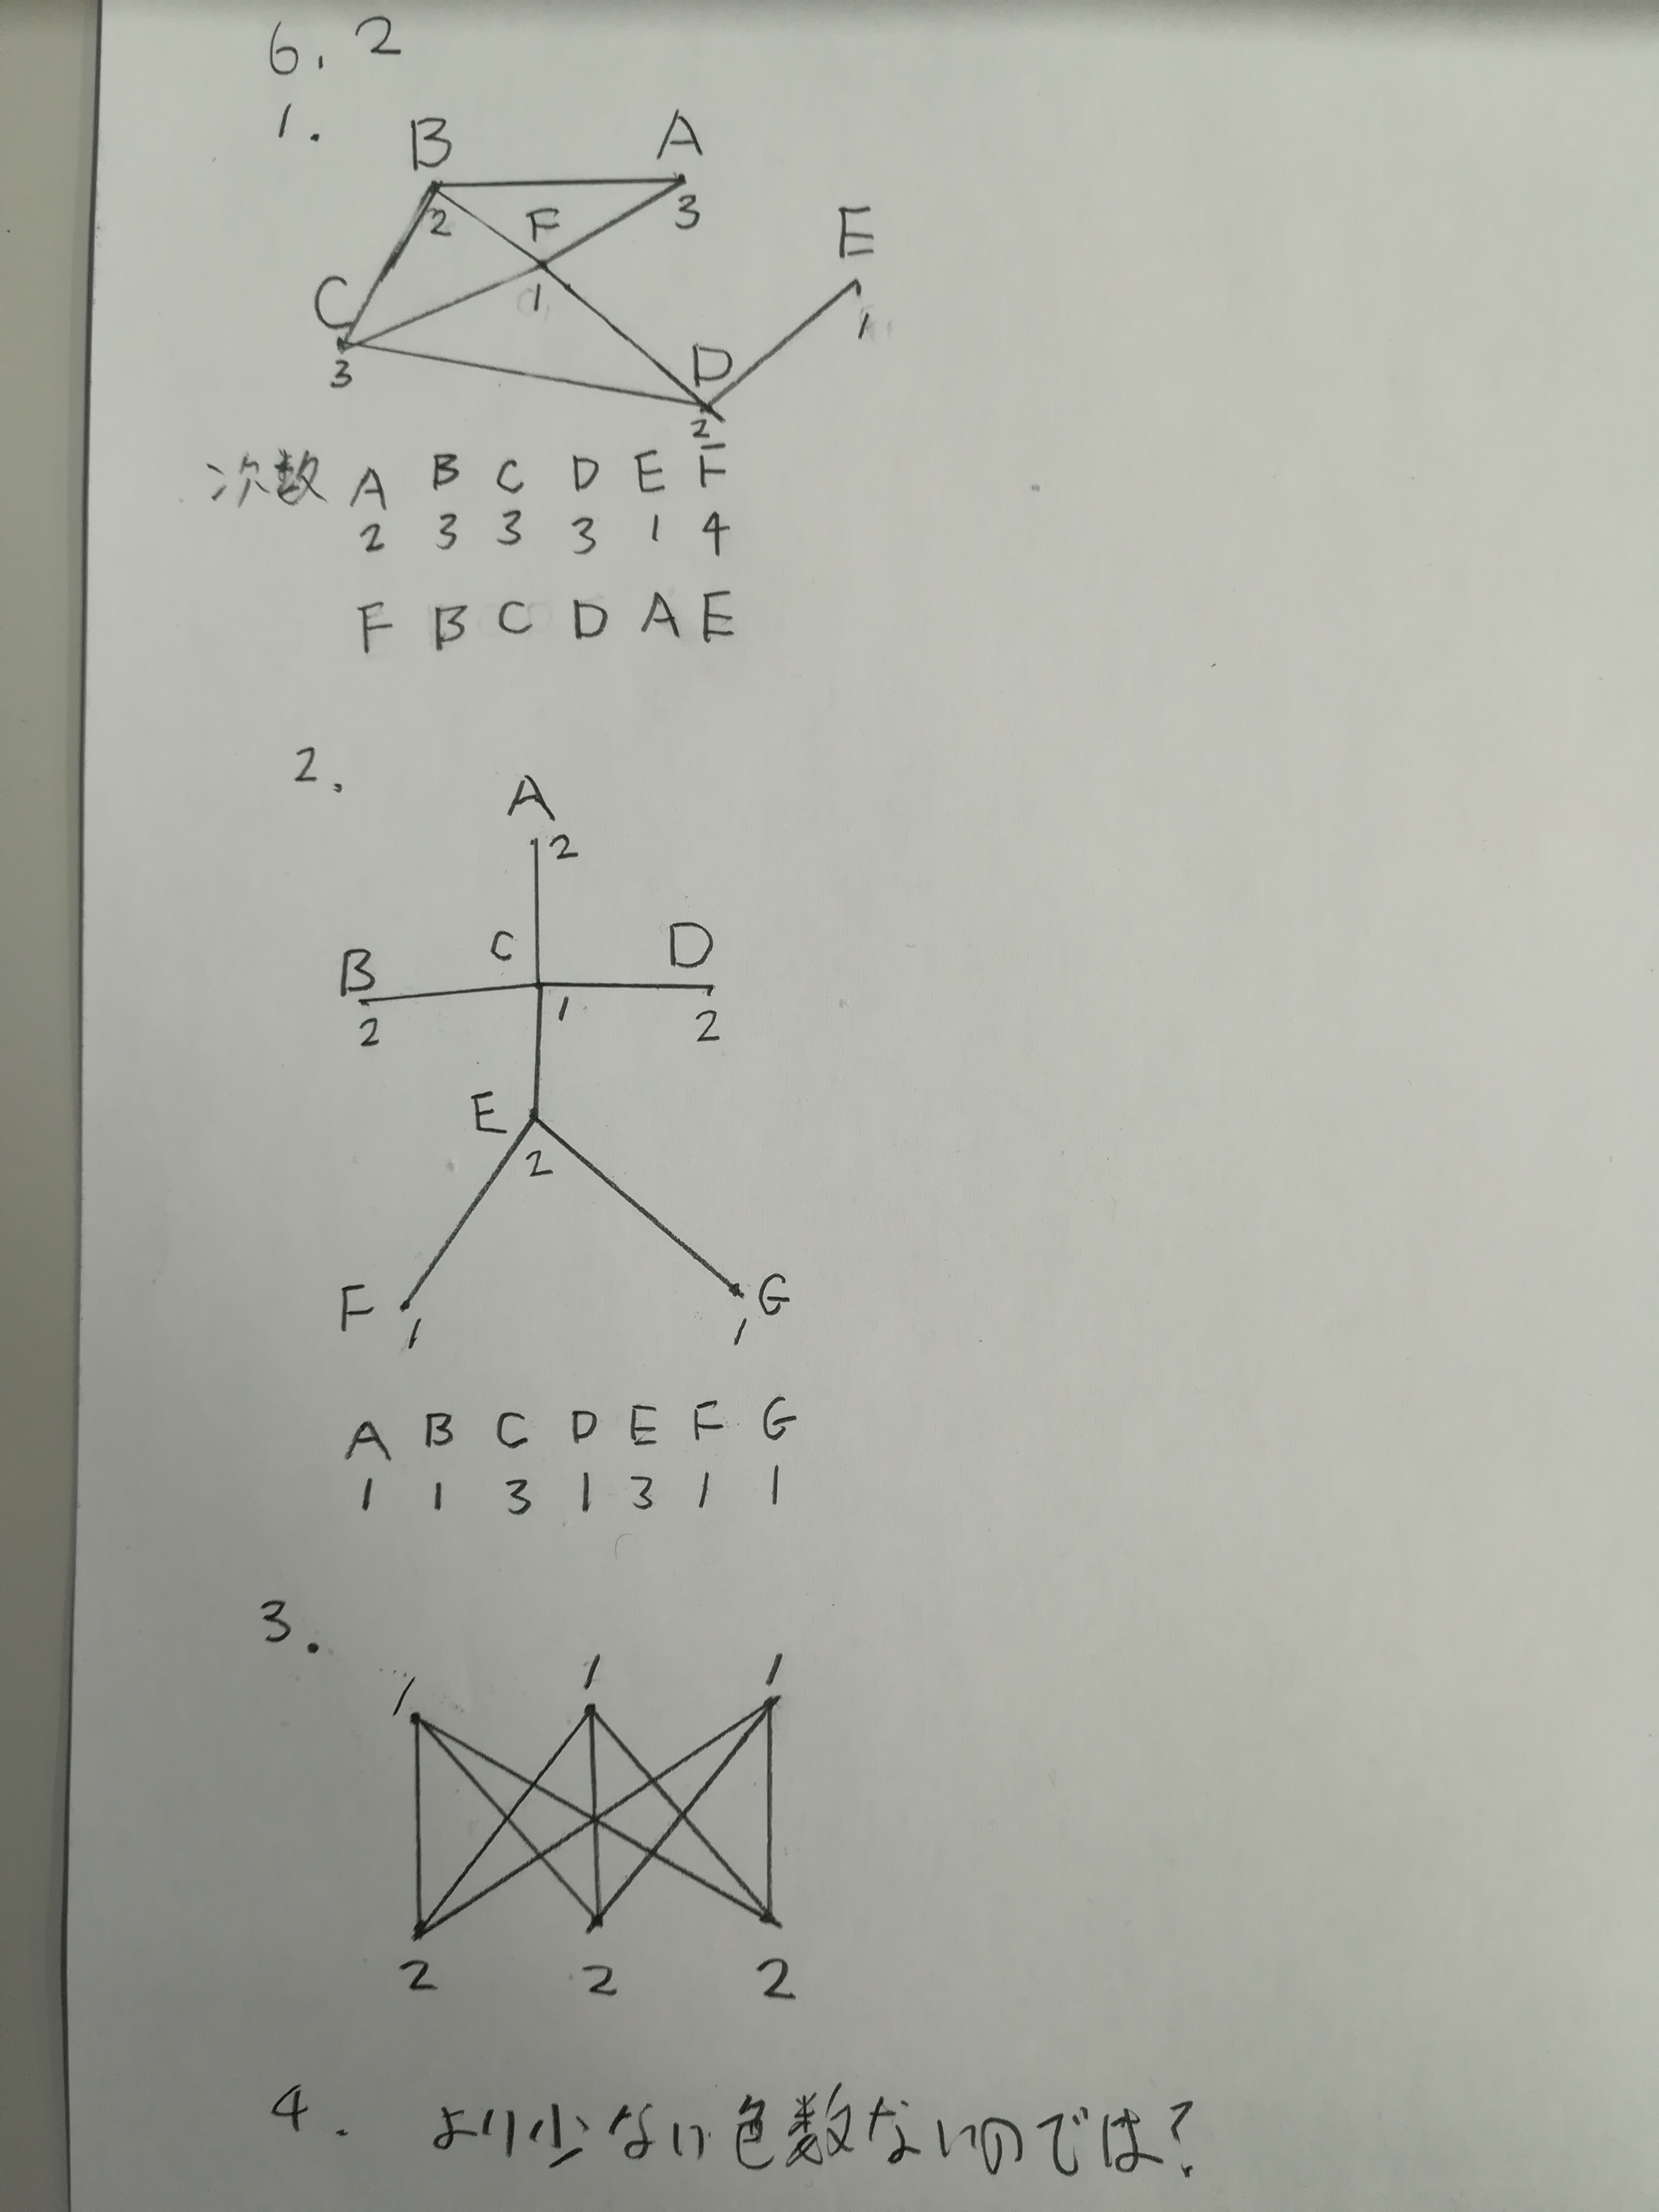 6.2
1.
B A
2 F 3 E
C 1 1
3 D
2
次数 A B C D E F
2 3 3 3 1 4
F B C D A E
2.
A
2
B C D
2 1 2
E
2
F G
1 1
A B C D E F G
1 1 3 1 3 1 1
3.
1 1 1
2 2 2
4. より少ない色数ないのでは?